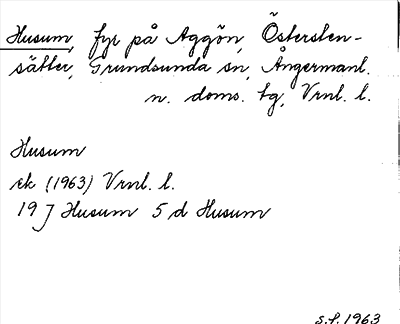 Husum, fyr på Aggön, Östersten-
sätter, Grundsunda sn, Ångermanl.
n. doms. tg, Vrnl. l.
Husum
ek (1963) Vrnl. l.
19 J Husum 5 d Husum
s.f. 1963